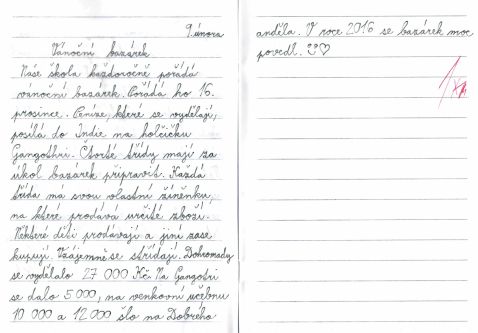 9. února
Vánoční bazárek
Naše škola každoročně pořádá
vánoční bazárek. Pořádá ho 16.
prosince. Peníze, které se vydělají,
posílá do Indie na holčičku
Gangothri. Čtvrté třídy mají za
úkol bazárek připravit. Každá
třída má svou vlastní žíněnku,
na které prodává určité zboží.
Některé děti prodávají a jiní zase
kupují. Vzájemně se střídají. Dohromady
se vydělalo 27 000 Kč. Na Gangotri
se dalo 5 000, na venkovní učebnu
10 000 a 12 000 šlo na Dobrého
anděla. V roce 2016 se bazárek moc
povedl.